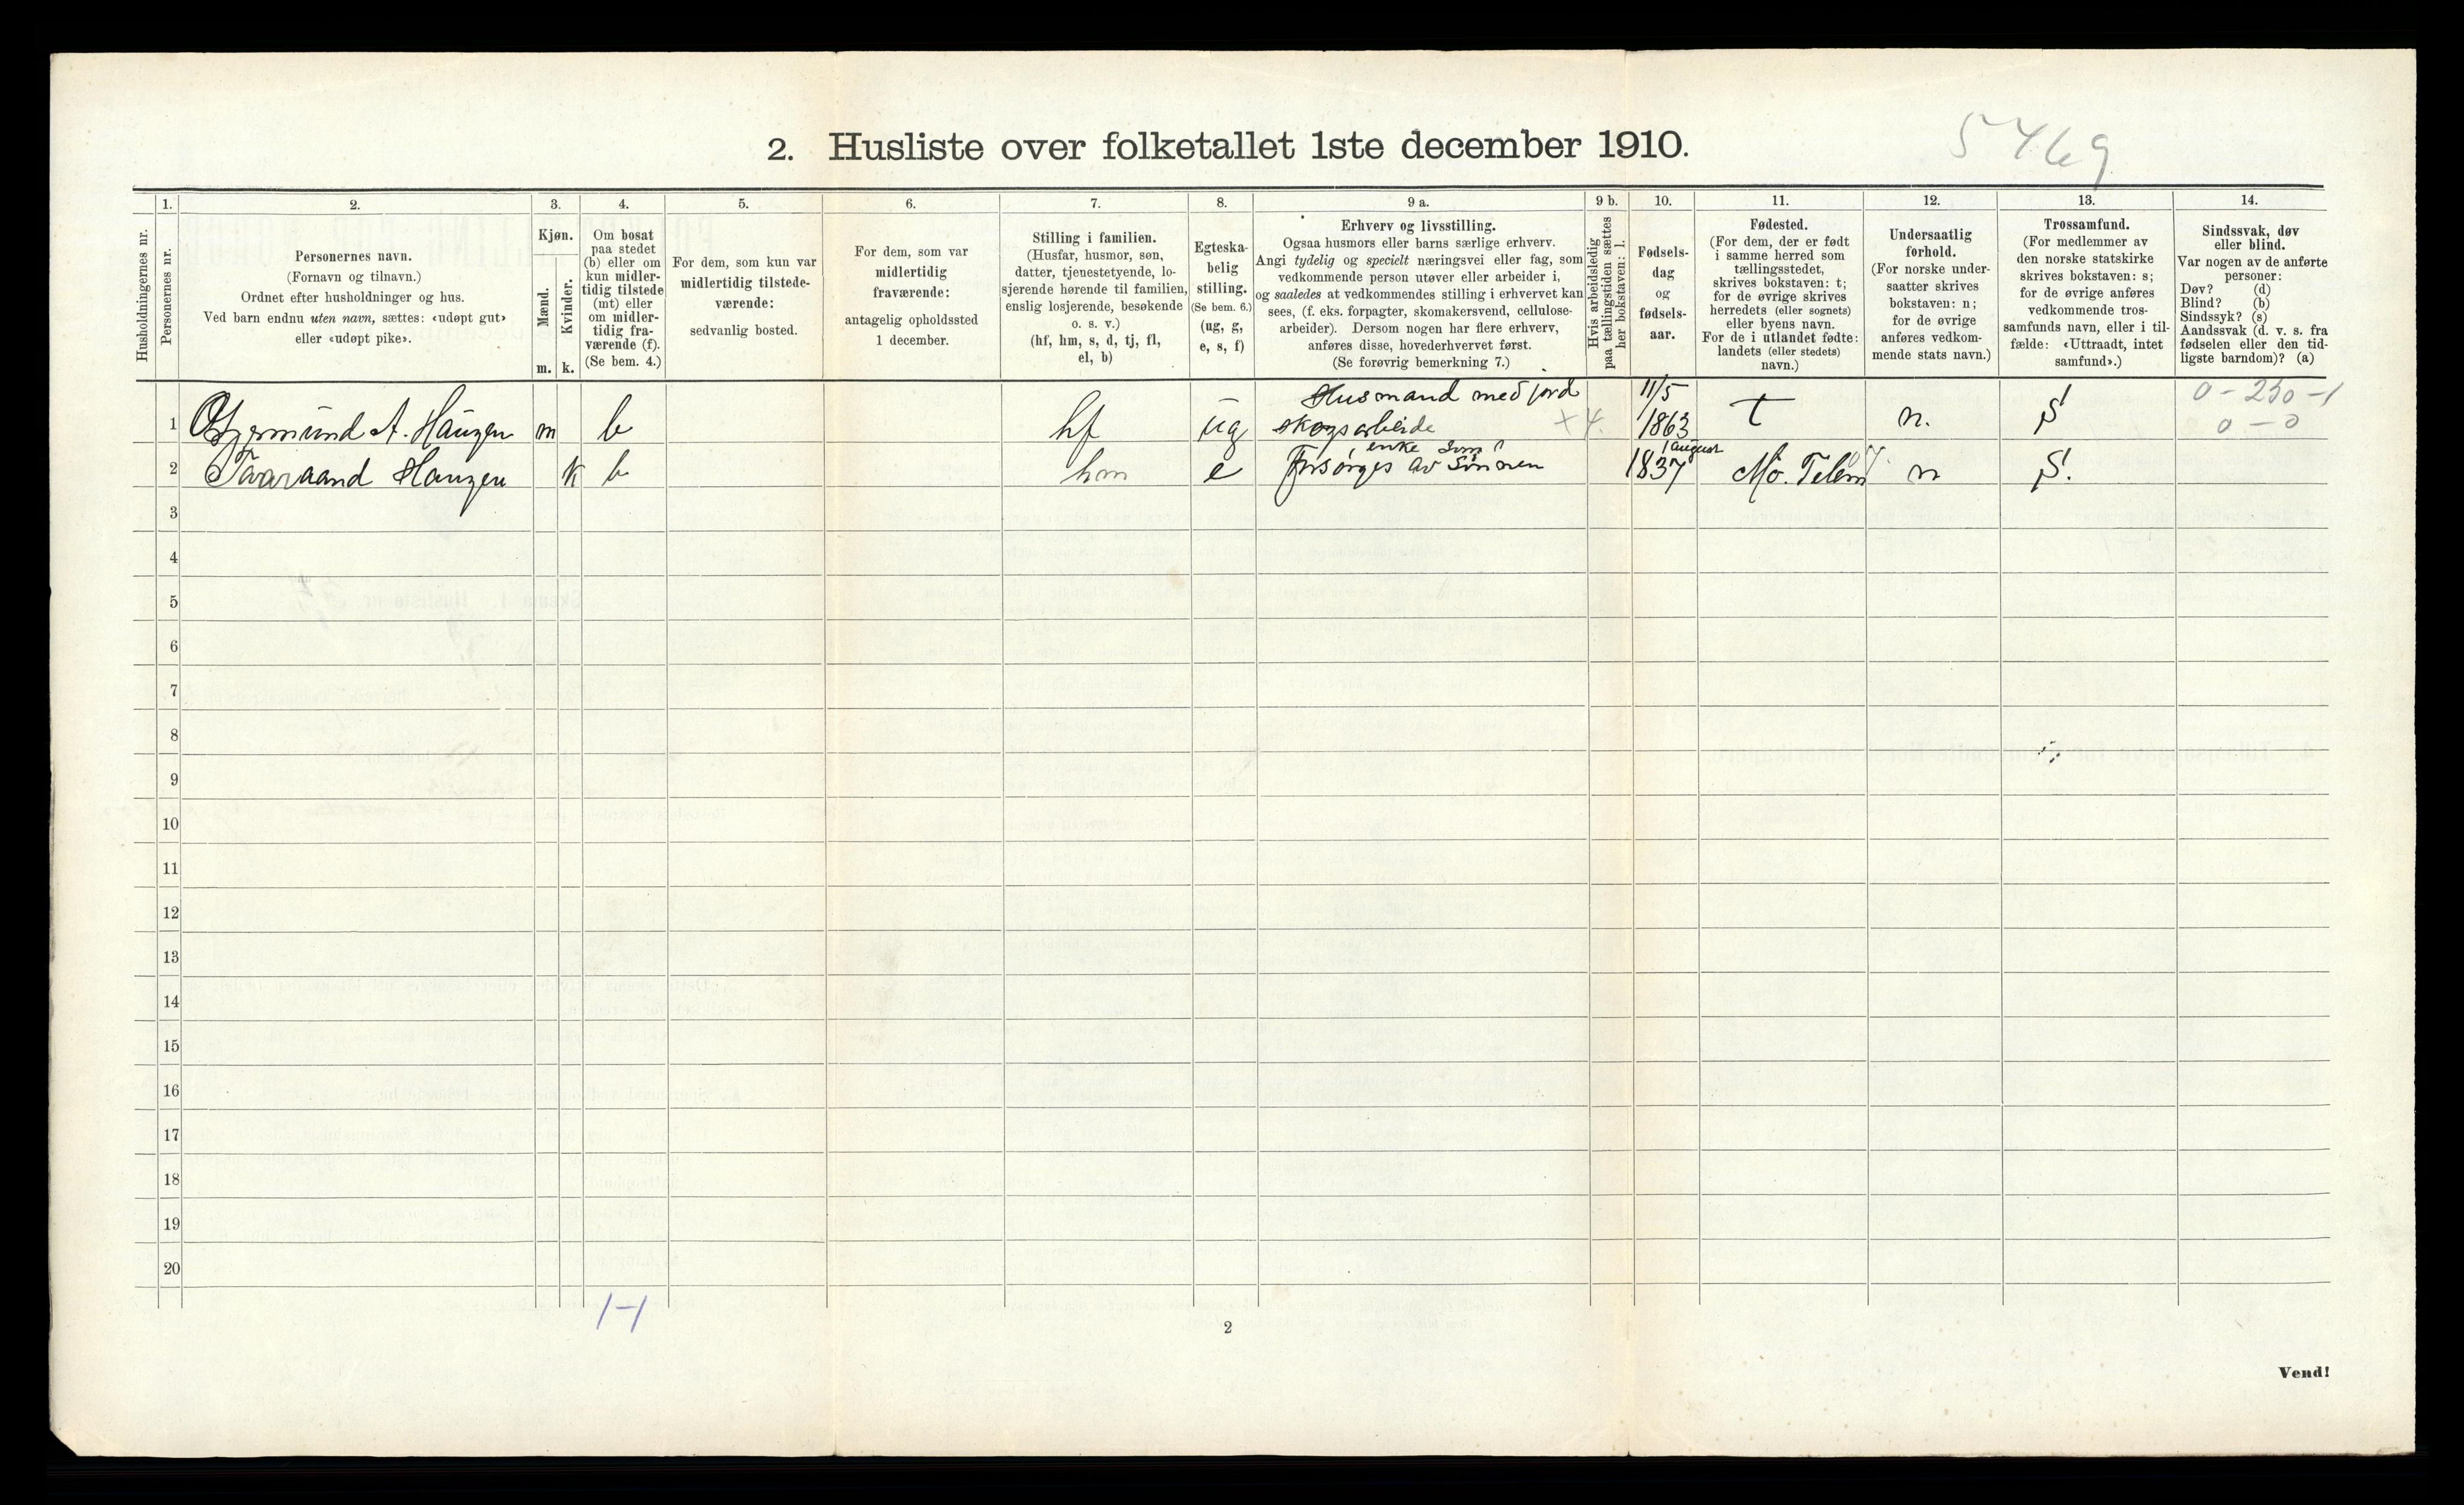 5469
2. Husliste over folketallet 1ste december 1910.
Husholdningernes nr.
1.
Personernes nr.
2.
Personernes navn.
(Fornavn og tilnavn.)
Ordnet efter husholdninger og hus.
Ved barn endnu uten navn, sættes: «udøpt gut»
eller «udøpt pike».
3.
Kjøn.
Mænd.
Kvinder.
m. k.
4.
Om bosat
paa stedet
(b) eller om
kun midler-
tidig tilstede
(mt) eller
om midler-
tidig fra-
værende (f).
(Se bem. 4.)
5.
For dem, som kun var
midlertidig tilstede-
værende:
sedvanlig bosted.
6.
For dem, som var
midlertidig
fraværende:
antagelig opholdssted
1 december.
7.
Stilling i familien.
(Husfar, husmor, søn,
datter, tjenestetyende, lo-
sjerende hørende til familien,
enslig losjerende, besøkende
o. s. v.)
(hf, hm, s, d, tj, fl,
el, b)
8.
Egteska-
belig
stilling.
(Se bem. 6.)
(ug, g,
e, s, f)
9 a.
Erhverv og livsstilling.
Ogsaa husmors eller barns særlige erhverv.
Angi tydelig og specielt næringsvei eller fag, som
vedkommende person utøver eller arbeider i,
og saaledes at vedkommendes stilling i erhvervet kan
sees, (f. eks. forpagter, skomakersvend, cellulose-
arbeider). Dersom nogen har flere erhverv,
anføres disse, hovederhvervet først.
(Se forøvrig bemerkning 7.)
9 b.
Hvis arbeidsledig
paa tællingstiden sættes
her bokstaven: l.
10.
Fødsels-
dag
og
fødsels-
aar.
11.
Fødested.
(For dem, der er født
i samme herred som
tællingsstedet,
skrives bokstaven: t;
for de øvrige skrives
herredets (eller sognets)
eller byens navn.
For de i utlandet fødte:
landets (eller stedets)
navn.)
12.
Undersaatlig
forhold.
(For norske under-
saatter skrives
bokstaven: n;
for de øvrige
anføres vedkom-
mende stats navn.)
13.
Trossamfund.
(For medlemmer av
den norske statskirke
skrives bokstaven: s;
for de øvrige anføres
vedkommende tros-
samfunds navn, eller i til-
fælde: «Uttraadt, intet
samfund».)
14.
Sindssvak, døv
eller blind.
Var nogen av de anførte
personer:
Døv? (d)
Blind? (b)
Sindssyk? (s)
Aandssvak (d. v. s. fra
fødselen eller den tid-
ligste barndom)? (a)
Husmand med jord 11/5 0-250-1
1 A. Haugen m b hf ug skogsarbeide +4. 1863 t n. S 0-0
enke som 1 august
2 Haugen k b hm e forsørges av Sønnen 1837 Mo. Telem 07 n S.
3
4
5
6
7
8
9
10
11
12
13
14
15
16
17
18
19
20
1-1
2
Vend!